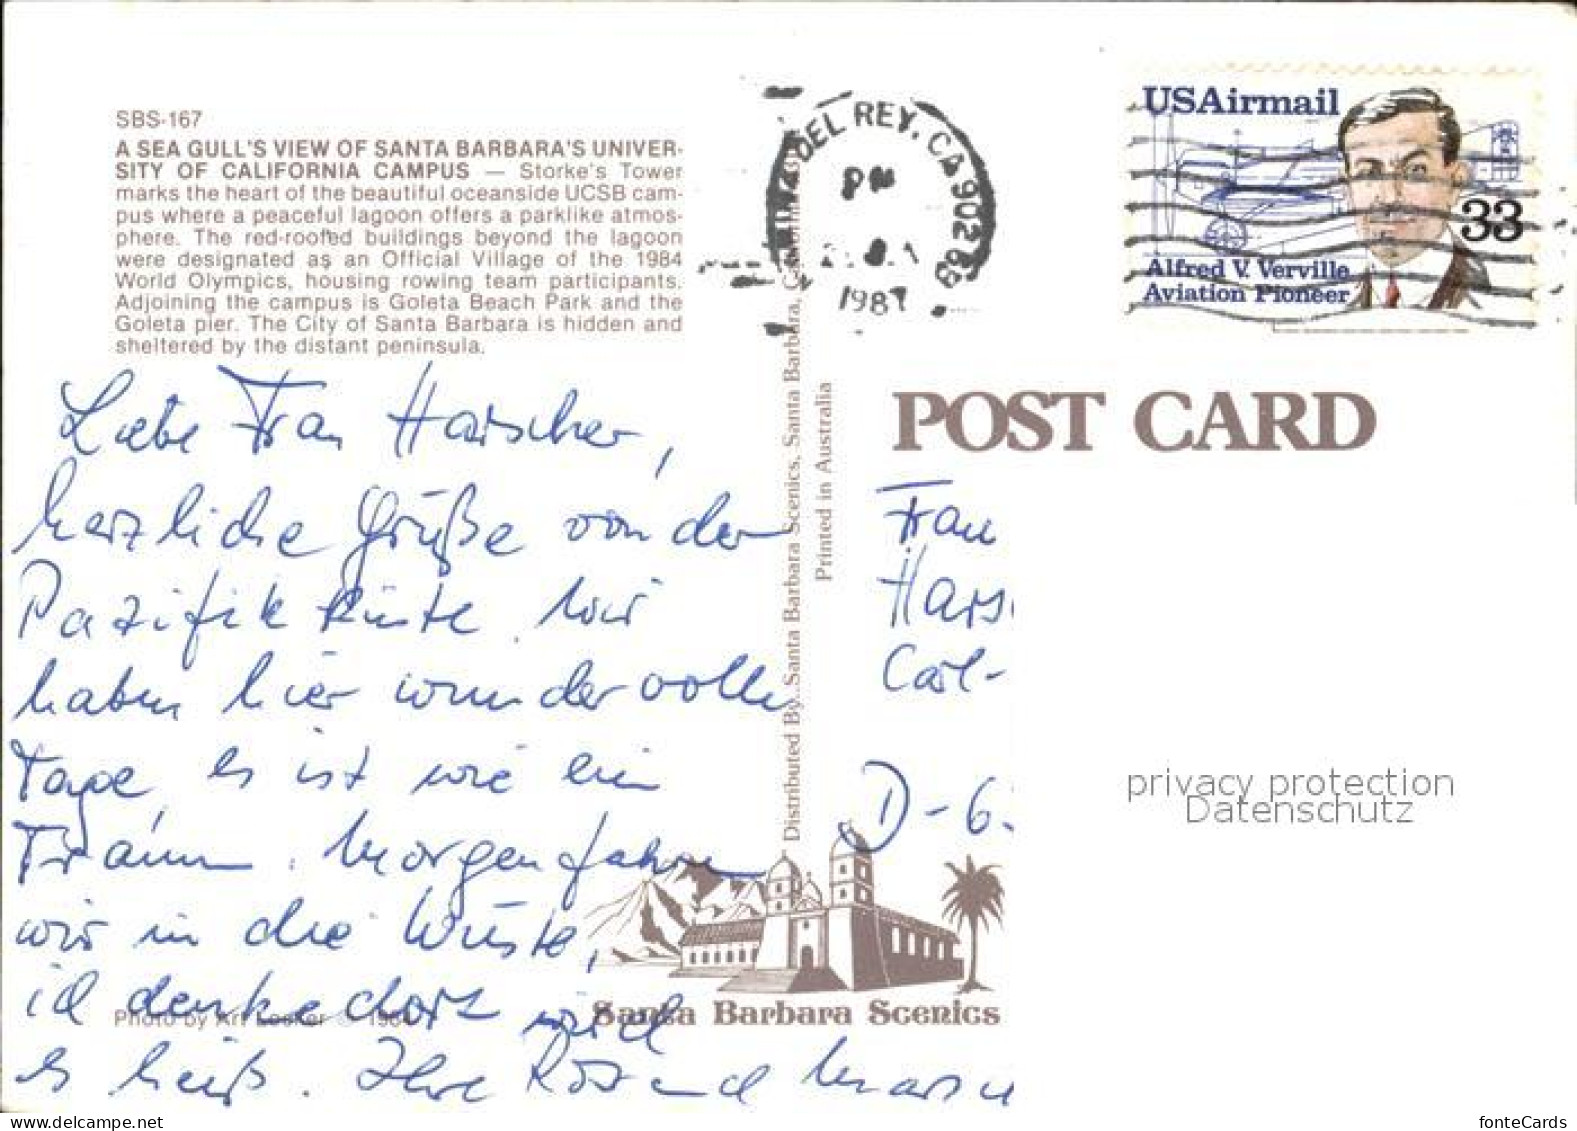 SBS-167
A SEA GULL'S VIEW OF SANTA BARBARA'S UNIVER-
SITY OF CALIFORNIA CAMPUS — Storke's Tower
marks the heart of the beautiful oceanside UCSB cam-
pus where a peaceful lagoon offers a parklike atmos-
phere. The red-roofed buildings beyond the lagoon
were designated as an Official Village of the 1984
World Olympics, housing rowing team participants.
Adjoining the campus is Goleta Beach Park and the
Goleta pier. The City of Santa Barbara is hidden and
sheltered by the distant peninsula.
Liebe Frau Harscher,
herzliche Grüße von der
Pazifik Küste. Wir
haben hier wundervolle
Tage, es ist wie ein
Traum. Morgen fahren
wir in die Wüste,
ich denke dort wird
es heiß. Ihre
Photo by Art 198
Distributed By: Santa Barbara Scenics, Santa Barbara,
Printed in Australia
DEL REY, CA 902
PM
1987
USAirmail
33
Alfred V. Verville
Aviation Pioneer
POST CARD
Frau
Hars
Carl-
D-6
Santa Barbara Scenics
privacy protection
Datenschutz
delcampe.net
fonteCards